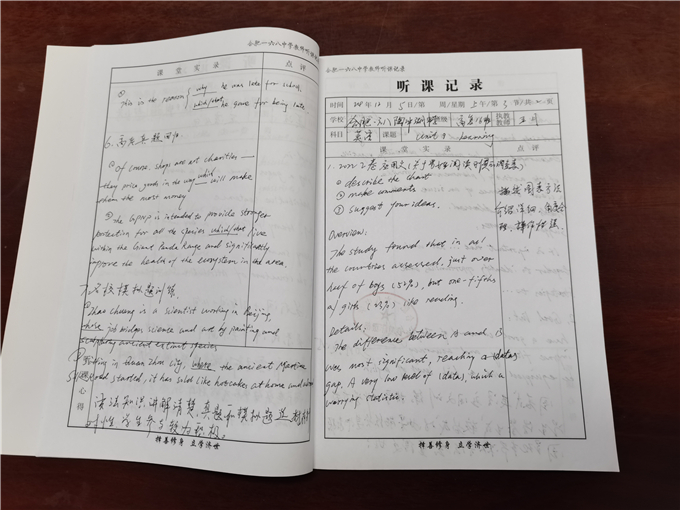 合肥一六八中学教师听课记录
课 堂 实 录 点 评
①
This is the reason why he was late for school.
which/that he gave for being late
6. 高考真题回归
① Of course, shops are not charities —
they price goods in the way which will make
them the most money
② the GPNP is intended to provide stronger
protection for all the species which/that live
within the Giant Panda Range and significantly
improve the health of the ecosystem in the area.
7. 名校模拟题训练
① Zhao Chuang is a scientist working in Beijing,
whose job bridges science and art by painting and
sculpting ancient extinct species
in Quan Zhou City, where the ancient Maritime
started, it has sold like hotcakes at home and
心得
语法知识讲解清楚, 真题和模拟题
学生参与较为积极。
择善修身 立学济世
合肥一六八中学教师听课记录
听课记录
时间 12月5日/第 周/星期 上午/第3节/共 页
学校 年级 执教教师
科目 英语 课题 Unit Learning
课 堂 实 录 点 评
① describe the chart
② make comments
③ suggest your ideas.
描述图表方法
介绍详细,
Overview:
The study found that in all
the countries assessed, just over
half of boys (52%), but one-fifths
of girls like reading.
Details:
The difference between A and B
was most significant, reaching a (data)
gap. A very low level of (data), which a
worrying statistic.
择善修身 立学济世